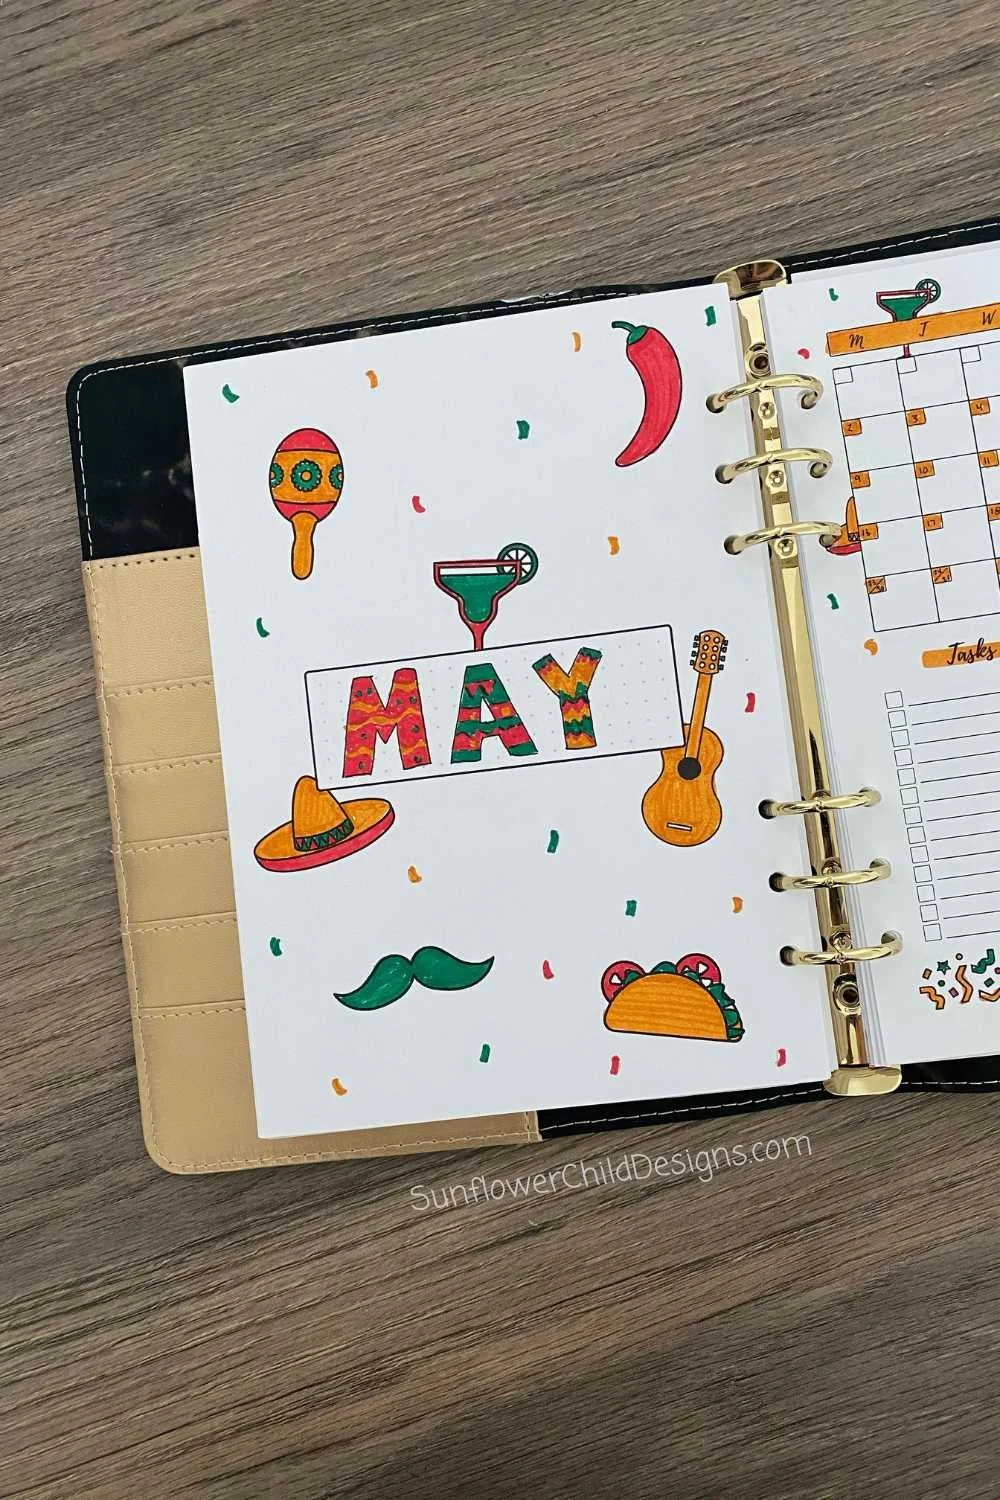 MAY
M T W
2 3 4
9 10 11
16 17 18
Tasks
SunflowerChildDesigns.com